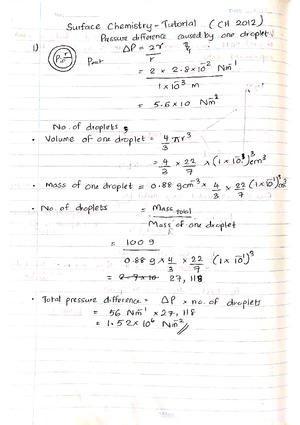 Surface Chemistry - Tutorial (CH 2012)
Pressure difference caused by one droplet
1) Pin r Pout ΔP = 2γ
r
= 2 × 2.8×10⁻² Nm⁻¹
1×10⁻³ m
= 5.6×10 Nm⁻²
No. of droplets
• Volume of one droplet = 4/3 πr³
= 4/3 × 22/7 × (1×10⁻¹)³ cm³
• mass of one droplet = 0.88 gcm⁻³ × 4/3 × 22/7 (1×10⁻¹)³ cm³
• No. of droplets = Mass Total
Mass of one droplet
= 100 g
0.88 g × 4/3 × 22/7 (1×10⁻¹)³
= 27,118
• Total pressure difference = ΔP × no. of droplets
= 56 Nm⁻¹ × 27,118
= 1.52×10⁶ Nm⁻²